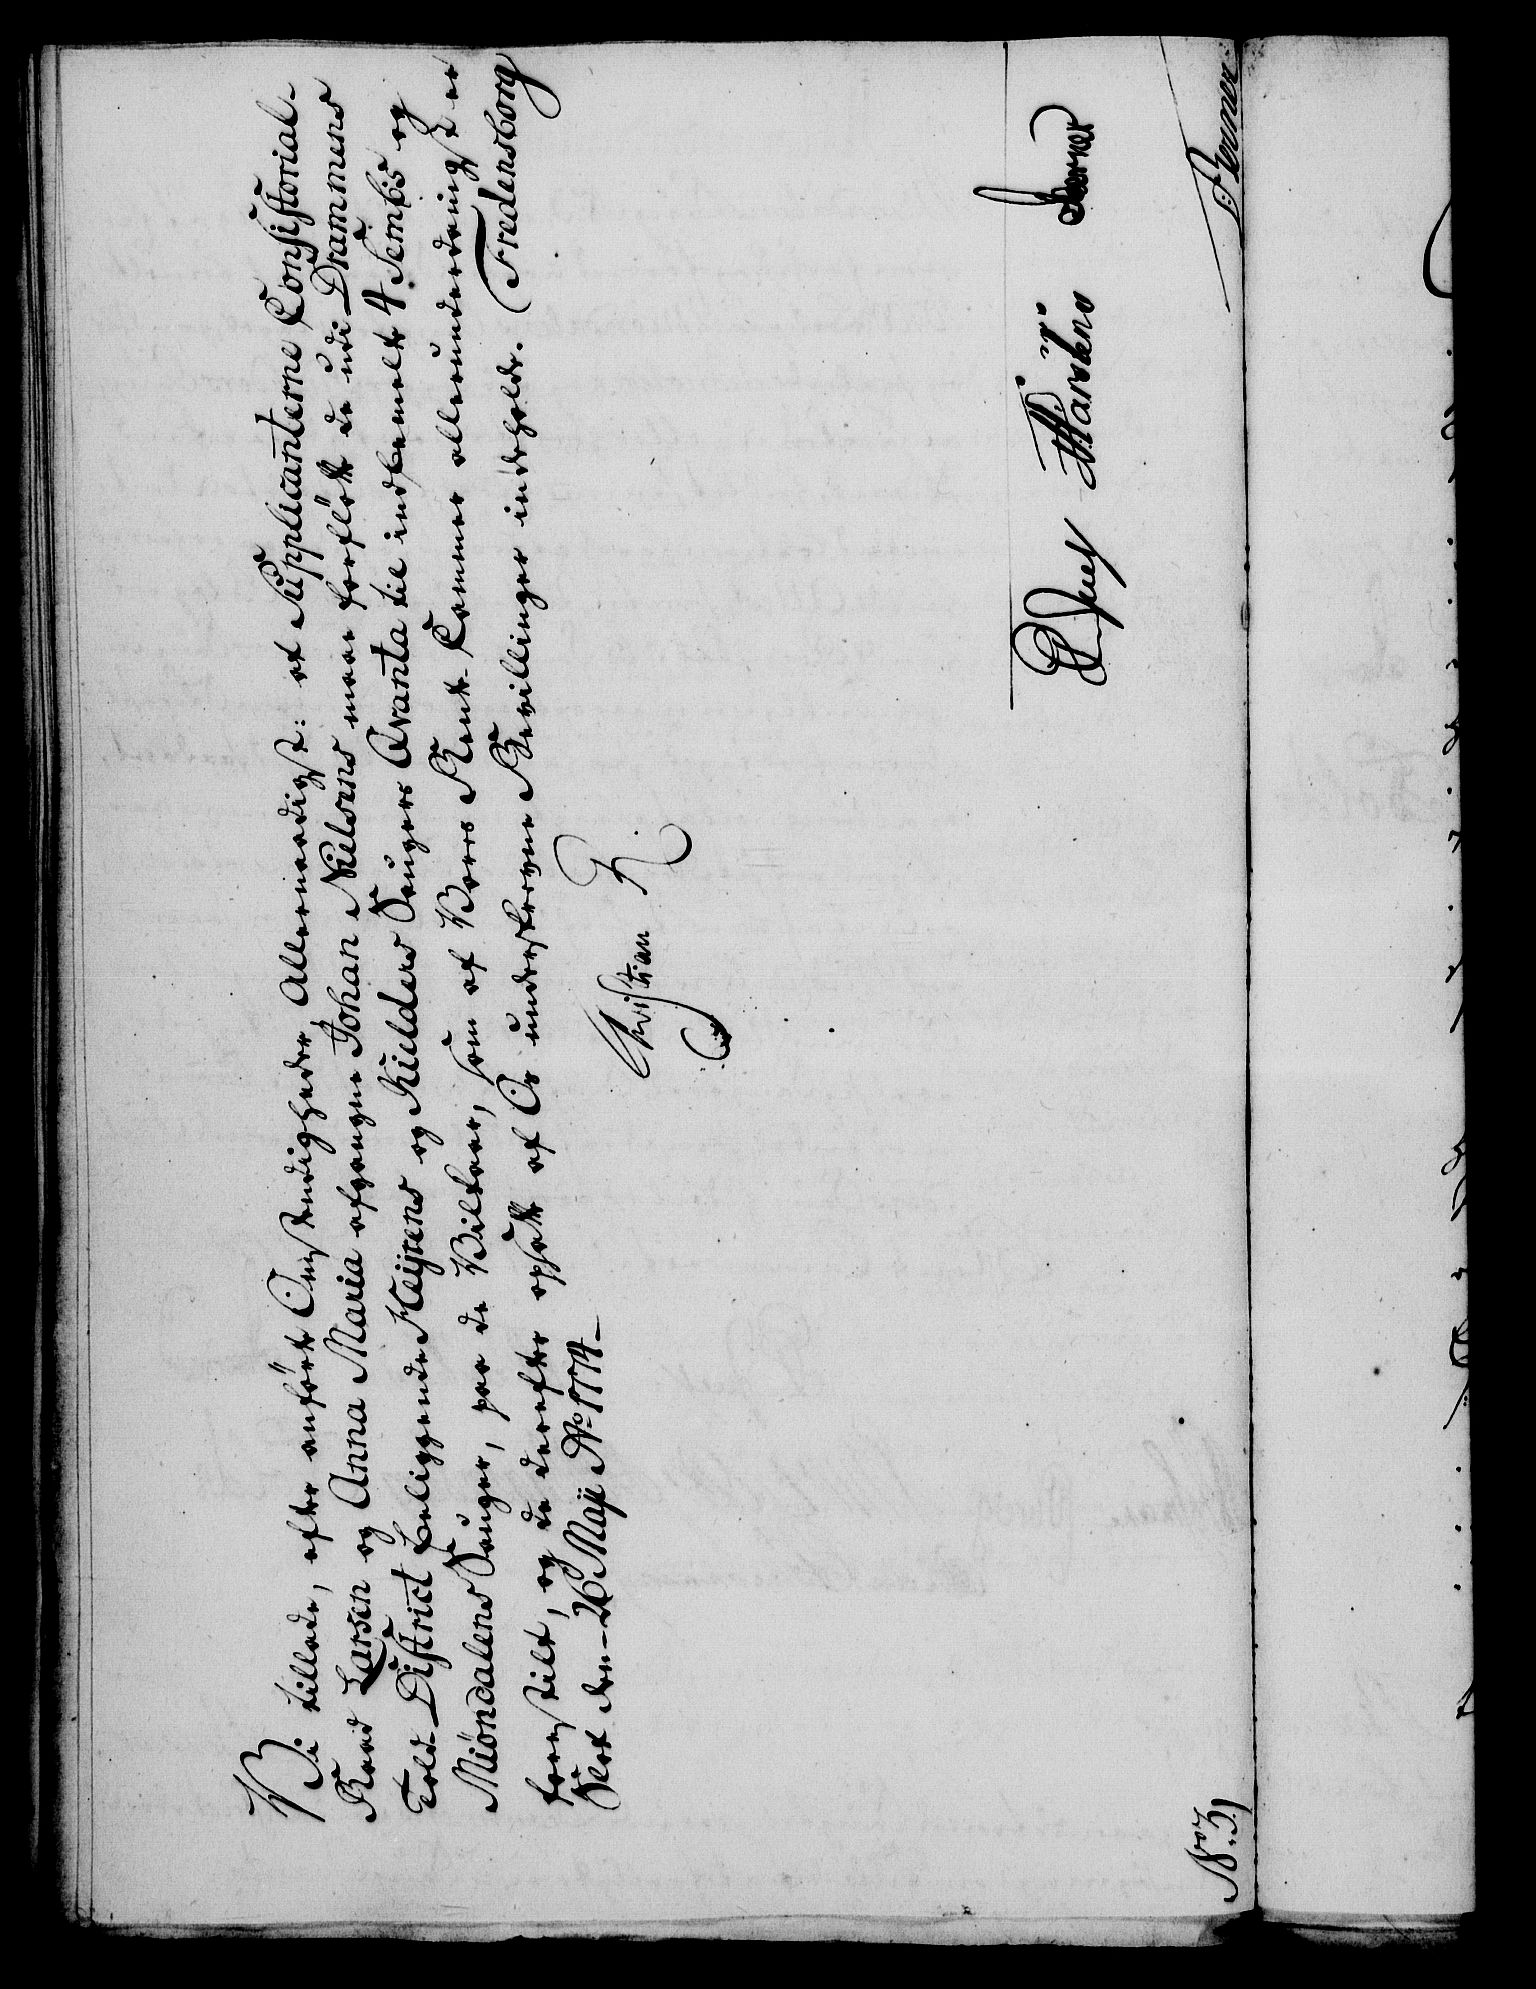 Vi tillade, efter anförte Omstændigheder, Allernaadigst: at Supplicanterne Consistorial-
Raad Larsen og Anna Maria afgangne Johan Nielsens maae forflötte de udi Drammens
Told-District beliggende Heijrens og Kielders Sauger Qvanta til indbemelte 4 og
Miöndalens Sauger, paa de Vilkaar, som af Vores Rente-Kammer allerunderdanigst er
forestilt, og de derefter opsatte af Os underskrevne Bevillinger indeholde. Fredensborg
Slot den 26 Maji Ao 1774.
Christian R
Juel Karstens
No 31